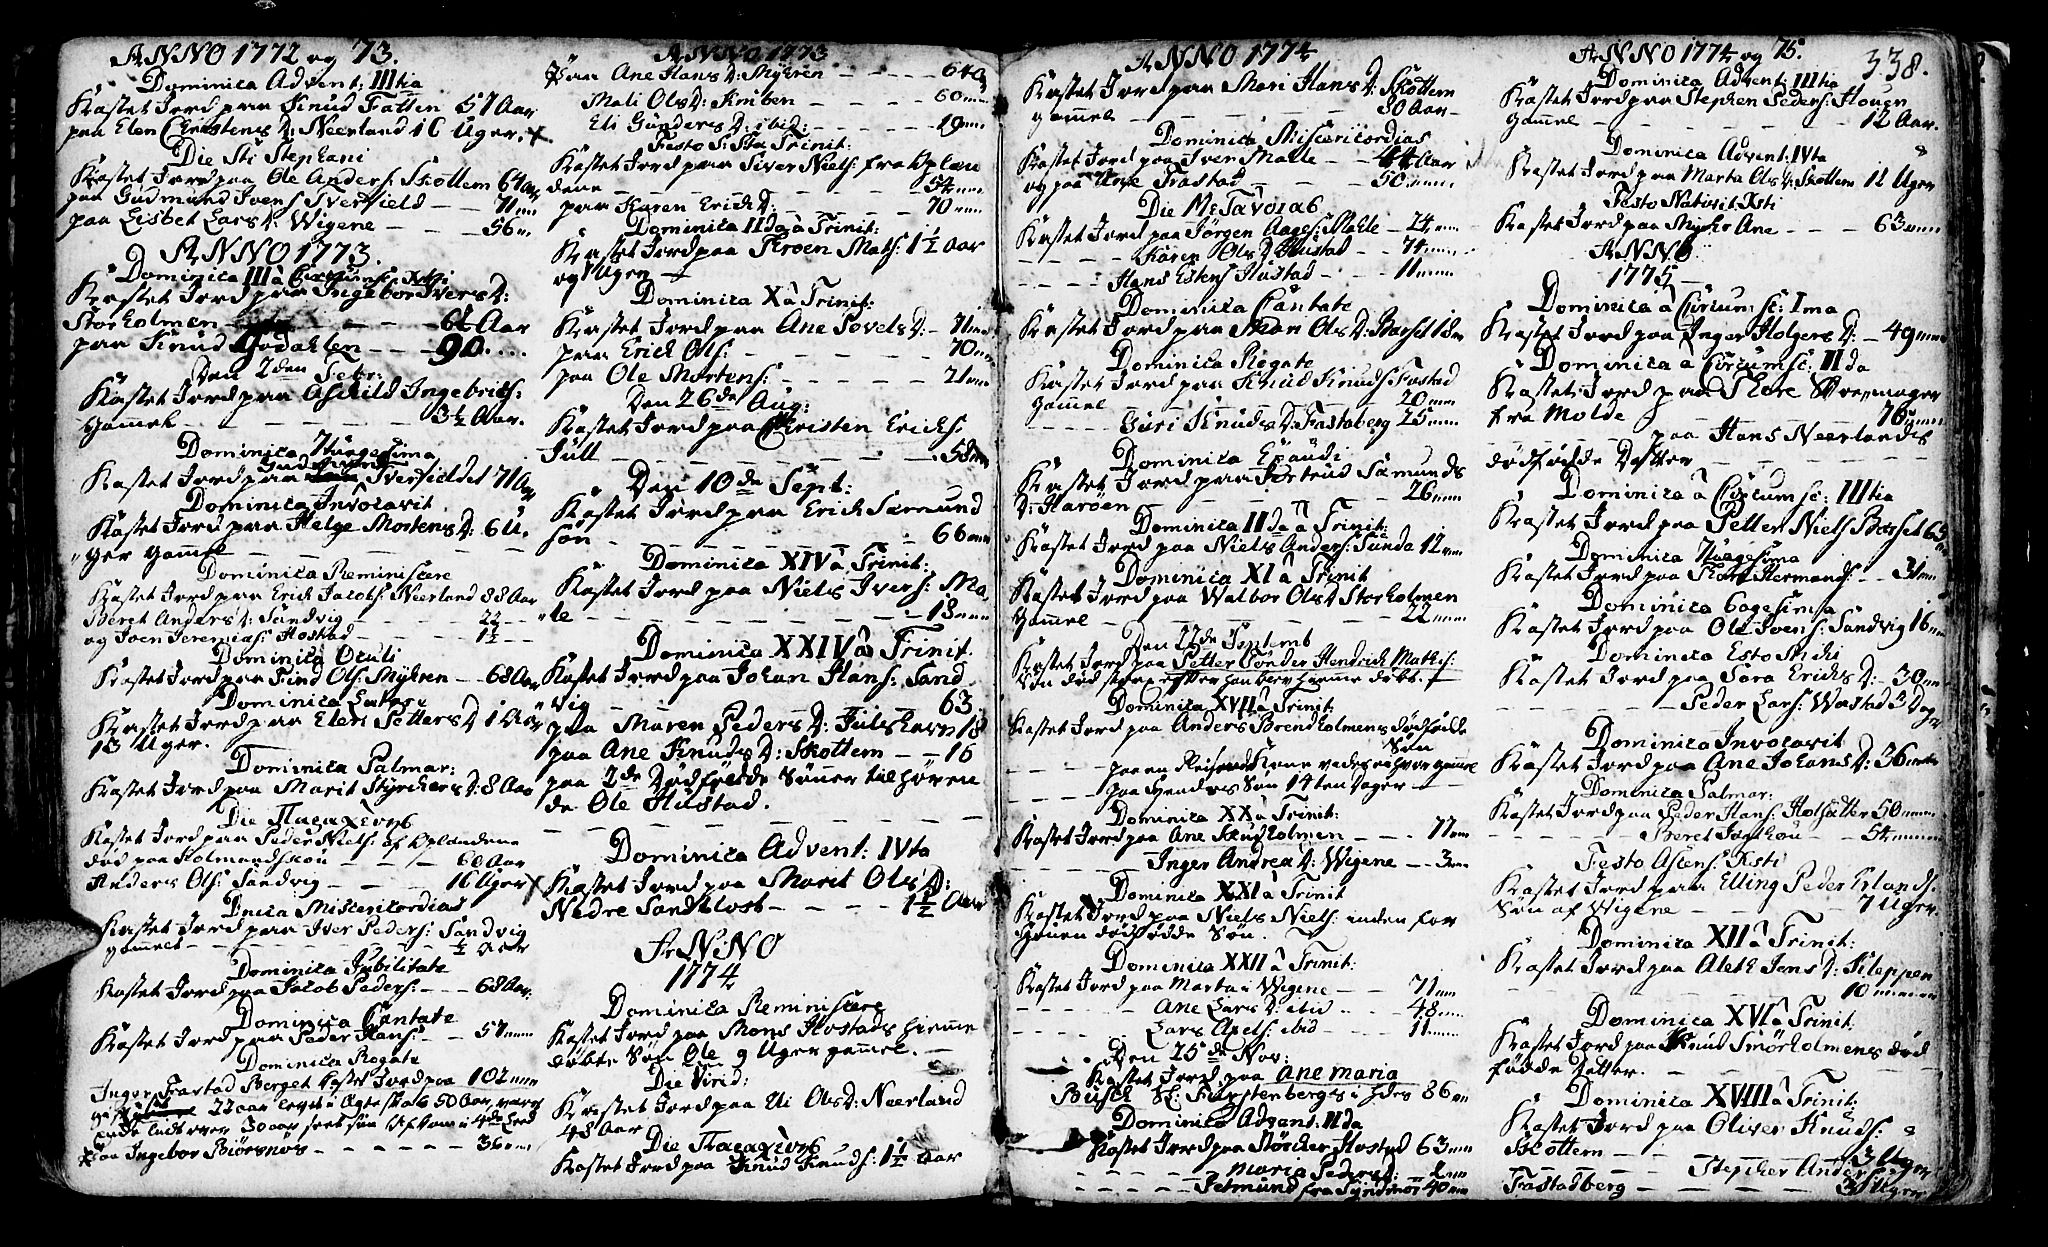 ANNO 1772 og 73.
Dominica Advent: IIItia
Kastet Jord paa Knud Tatten 57 Aar
paa Elen Christens D: Neerland 16 Uger.
Die Sti Stephani
Kastet Jord paa Ole Anders: Skottem 64 aar
paa Gudmund Joens: Sverfield — — 71 —
paa Lisbet Lars D: Wigene — — 56 —
ANNO 1773.
Dominica III à Circumsc: Xsti
Kastet Jord paa Ingebor Ivers D:
Storholmen — — — 6½ Aar
paa Knud Godahlen — — 90....
Den 2den Febr:
Kastet Jord paa Askild Ingebrits:
gammel — — — 3½ Aar.
Dominica 7tuagesima
Kastet Jord paa Sverfieldet 71 Aar
Dominica Invocavit
Kastet Jord paa Helge Mortens D: 6 U.
ger gammel — — —
Dominica Reminiscere
Kastet Jord paa Erich Jacobs: Neerland 88 Aar
Beret Anders D: Sandvig — — 22 —
og Joen Jeremias: Hostad — — 1½ —
Dominica Oculi
Kastet Jord paa Find Ols: Myhren — 68 Aar
Dominica Lætare
Kastet Jord paa Elen Petters D: 1 Aar
13 Uger.
Dominica Palmar:
Kastet Jord paa Marit Styrchers D: 8 Aar
Die Παρασκευης
Kastet Jord paa Peder Niels: af Oplandene
død paa Holmandskou — — 60 Aar
Anders Ols: Sandvig — — 16 Uger
Dnica Misericordias
Kastet Jord paa Iver Peders: Sandvig
gammel — — — ½ Aar
Dominica Jubilate
Kastet Jord paa Jacob Peders: — — 68 Aar.
Dominica Cantate
Kastet Jord paa Peder Hans: — — 57 —
Dominica Rogate
Inger Frastad Berget Kastet Jord paa 102 —
22 aar levet i Ægteskab 50 Aar, været
Enke
paa Ingebor Biørsnøs — — — 36 —
ANNO 1773
paa Ane Hans D: Myhren — — — 64 a
Mali Ols D: Kniben — — — 60 —
Eli Gunders D: ibid: — — — 19 —
Festo S: Stæ Trinit:
Kastet Jord paa Siver Niels: fra Oplan
dene — — — 54 —
paa Karen Erichs D: — — — 70 —
Dominica IIda à Trinit:
Kastet Jord paa Troen Mats: 1½ Aar
og 1 Ugen —
Dominica X à Trinit:
Kastet Jord paa Ane Povels D: — 71 —
paa Erich Ols: — — — 70 —
paa Ole Mortens: — — — 21 —
Den 26de Aug:
Kastet Jord paa Christen Erichs:
Jull — — — 58 —
Den 10de Sept:
Kastet Jord paa Erich Sæmund
søn — — — 66 —
Dominica XIV à Trinit:
Kastet Jord paa Niels Ivers: Ma
le — — — 18 —
Dominica XXIV à Trinit.
Kastet Jord paa Johan Hans: Sand
vig — — — 63.
paa Maren Peders D: Julshavn 18
paa Ane Knuds D: Skottem — — 16
paa 2de Dødfødde Sønner tilhøren
de Ole Hustad.
Dominica Advent: IVta
Kastet Jord paa Marit Ols D:
Nedre Sandklost — — — 1½ Aar
ANNO
1774
Dominica Reminiscere
Kastet Jord paa Mons Hostads hiemme
døbte Søn Ole 9 Uger gammel. —
Die Virid:
Kastet Jord paa Eli Ols D: Neerland
48 Aar
Die Παρασκευης
Kastet Jord paa Knud Knuds: 1½ Aar
ANNO 1774
Kastet Jord paa Mari Hans D: Skottem
gammel — — — 80 Aar —
Dominica Misericordias
Kastet Jord paa Iver Malle — — 44 Aar
og paa Ane Frastad — — 50 —
Die
Kastet Jord paa Jørgen Aages: Mahle — 24 —
— — — Karen Ols D: Hustad — 74 —
— — — Hans Estens Hustad — — 11 —
Dominica Cantate
Kastet Jord paa Ols D: Barset
Dominica Rogate
Kastet Jord paa Knud Knuds: Fastad
gammel — — — 20 —
— — — Guri Knuds D: Fastaberg 25 —
Dominica Exaudi
Kastet Jord paa Jertrud Sæmunds
D: Harøen — — — 26 —
Dominica IIda à Trinit:
Kastet Jord paa Niels Anders: Sunda 12 —
Dominica XI à Trinit
Kastet Jord paa Walbor Ols D Storholmen
gammel — — — 22 —
Den 22de Septemb
Kastet Jord paa Petter Hendrich Mathis:
Søn død strax efter han blev hiemme døbt. —
Dominica XVII à Trinit:
Kastet Jord paa Anders Brendholmens dødfødde
Søn
— — — paa en Kone
— — — paa Hendes Søn 14ten Dager —
Dominica XX à Trinit:
Kastet Jord paa Ane Skudholmen — — 77 —
— — — Inger Andrea D: Wigene — — 3 —
Dominica XXI à Trinit
Kastet Jord paa Niels Niels: inden for
Gouen dødfødde Søn.
Dominica XXII à Trinit:
Kastet Jord paa Marta i Wigene — — 71 —
— — — Ane Lars D: ibid — — 48 —
— — — Lars Axels: ibid — — 11 —
Den 25de Nov:
Kastet Jord paa Ane Maria
Busch Sl: Fürstenbergs i hdes 86 —
Dominica Advent: IIda
Kastet Jord paa Størcher Hostad 63 —
— — — Maria Peders D: — 2 —
— — — Jetmund fra Syndmør 40 —
ANNO 1774 og 75.
338.
Dominica Advent: IIItia
Kastet Jord paa Stephen Peders: Hougn
gammel — — — 12 Aar.
Dominica Advent: IVta
Kastet Jord paa Marta Ols D: Skottem 11 Uger
Festo Nativit Xsti
Kastet Jord paa Myhr Ane — — — 63 —
ANNO
1775
Dominica à Circumsc: Ima
Kastet Jord paa Inger Holgers D: — 49 —
Dominica à Circumsc: IIda
Kastet Jord paa Thore
fra Molde — — — 76 —
— — — paa Hans Neerlandes
dødfødde Datter — — —
Dominica à Circumsc: IIItia
Kastet Jord paa Petter Niels Barset 65
Dominica 7tuagesima
Kastet Jord paa Hermands: — — 31 —
Dominica 6agesima
Kastet Jord paa Ole Ivers: Sandvig 16 —
Dominica Esto Mihi
Kastet Jord paa Sara Erichs D: — 30 —
— — — Peder Lars: Wastad 3 Dage
Dominica Invocavit
Kastet Jord paa Ane Johans D: 36 —
Dominica Palmar:
Kastet Jord paa Peder Hans: Holsætter 50 —
— — — Beret — — 54 —
Festo Ascens: Xsti
Kastet Jord paa Elling Peder Erlands:
Søn af Wigene — — — 7 Uger.
Dominica XII à Trinit:
Kastet Jord paa Aleth Jens D: Kleppen
— — — 10 —
Dominica XVI à Trinit:
Kastet Jord paa Knud Smörholmens død
fødde Datter. — — —
Dominica XVIII à Trinit:
Kastet Jord paa Oliver Knuds:
Skottem — — — 3 Uger
— — — Stephen Anders:
Fastadberg — — — 3 Uger